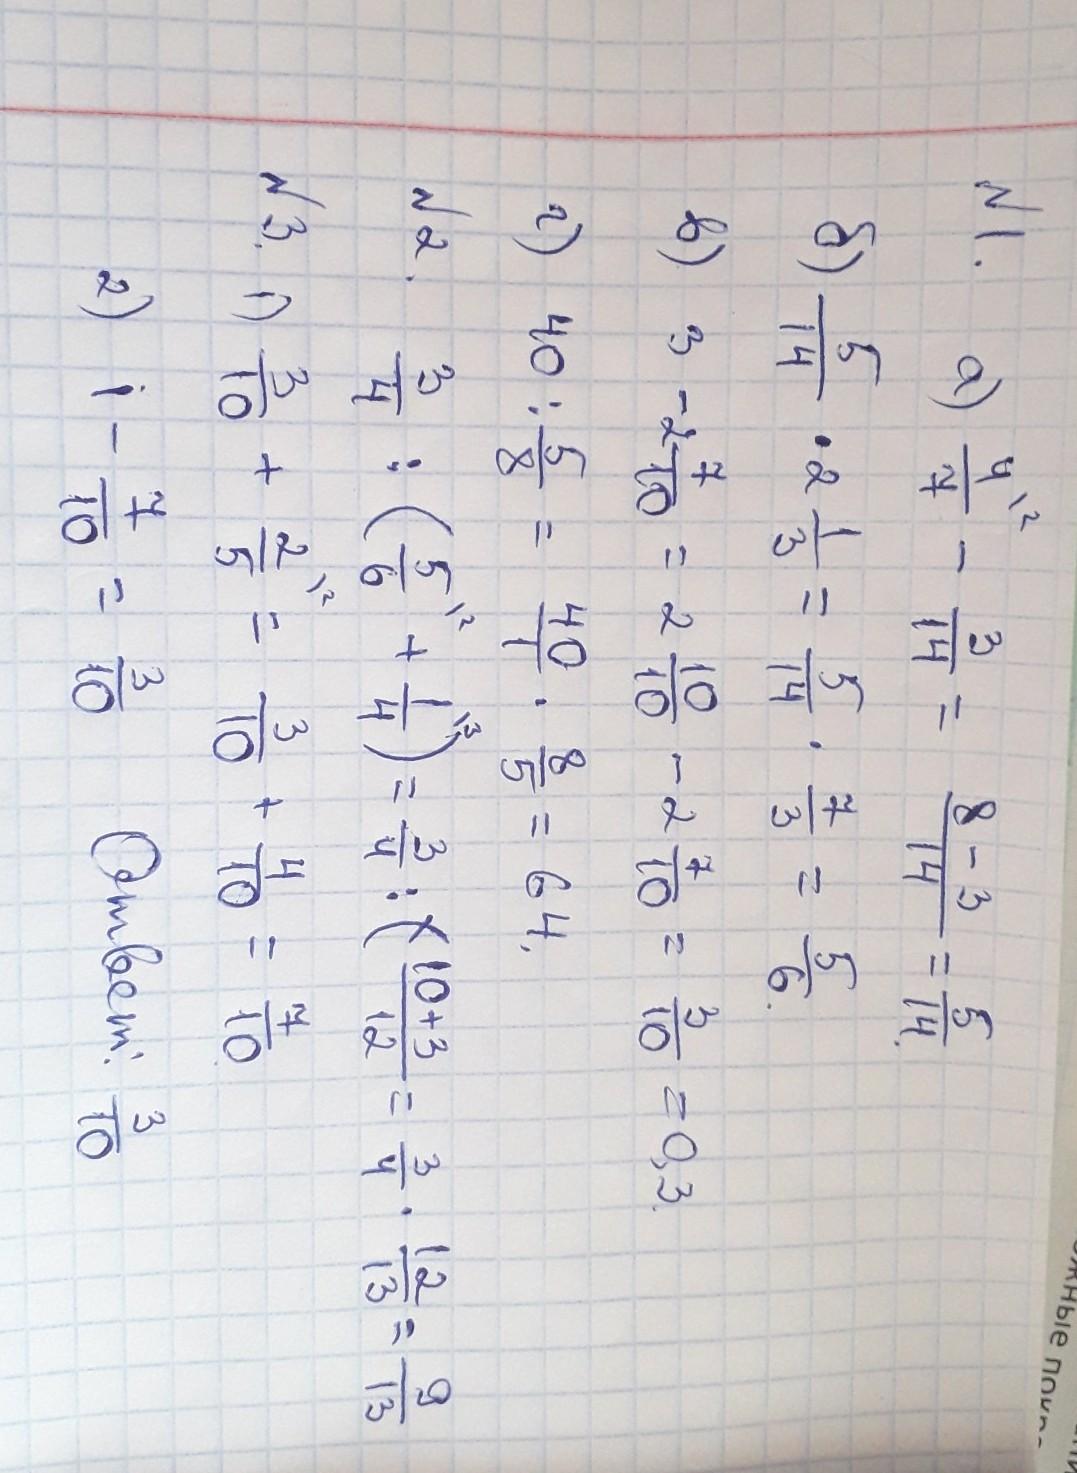 N1. а) 4/7^\2 - 3/14 = (8-3)/14 = 5/14.
б) 5/14 · 2 1/3 = 5/14 · 7/3 = 5/6.
в) 3 - 2 7/10 = 2 10/10 - 2 7/10 = 3/10 = 0,3.
г) 40 : 5/8 = 40/1 · 8/5 = 64.
N2. 3/4 : (5/6^\2 + 1/4^\3) = 3/4 : ((10+3)/12 = 3/4 · 12/13 = 9/13
N3. 1) 3/10 + 2/5^\2 = 3/10 + 4/10 = 7/10.
2) 1 - 7/10 = 3/10 Ответ: 3/10